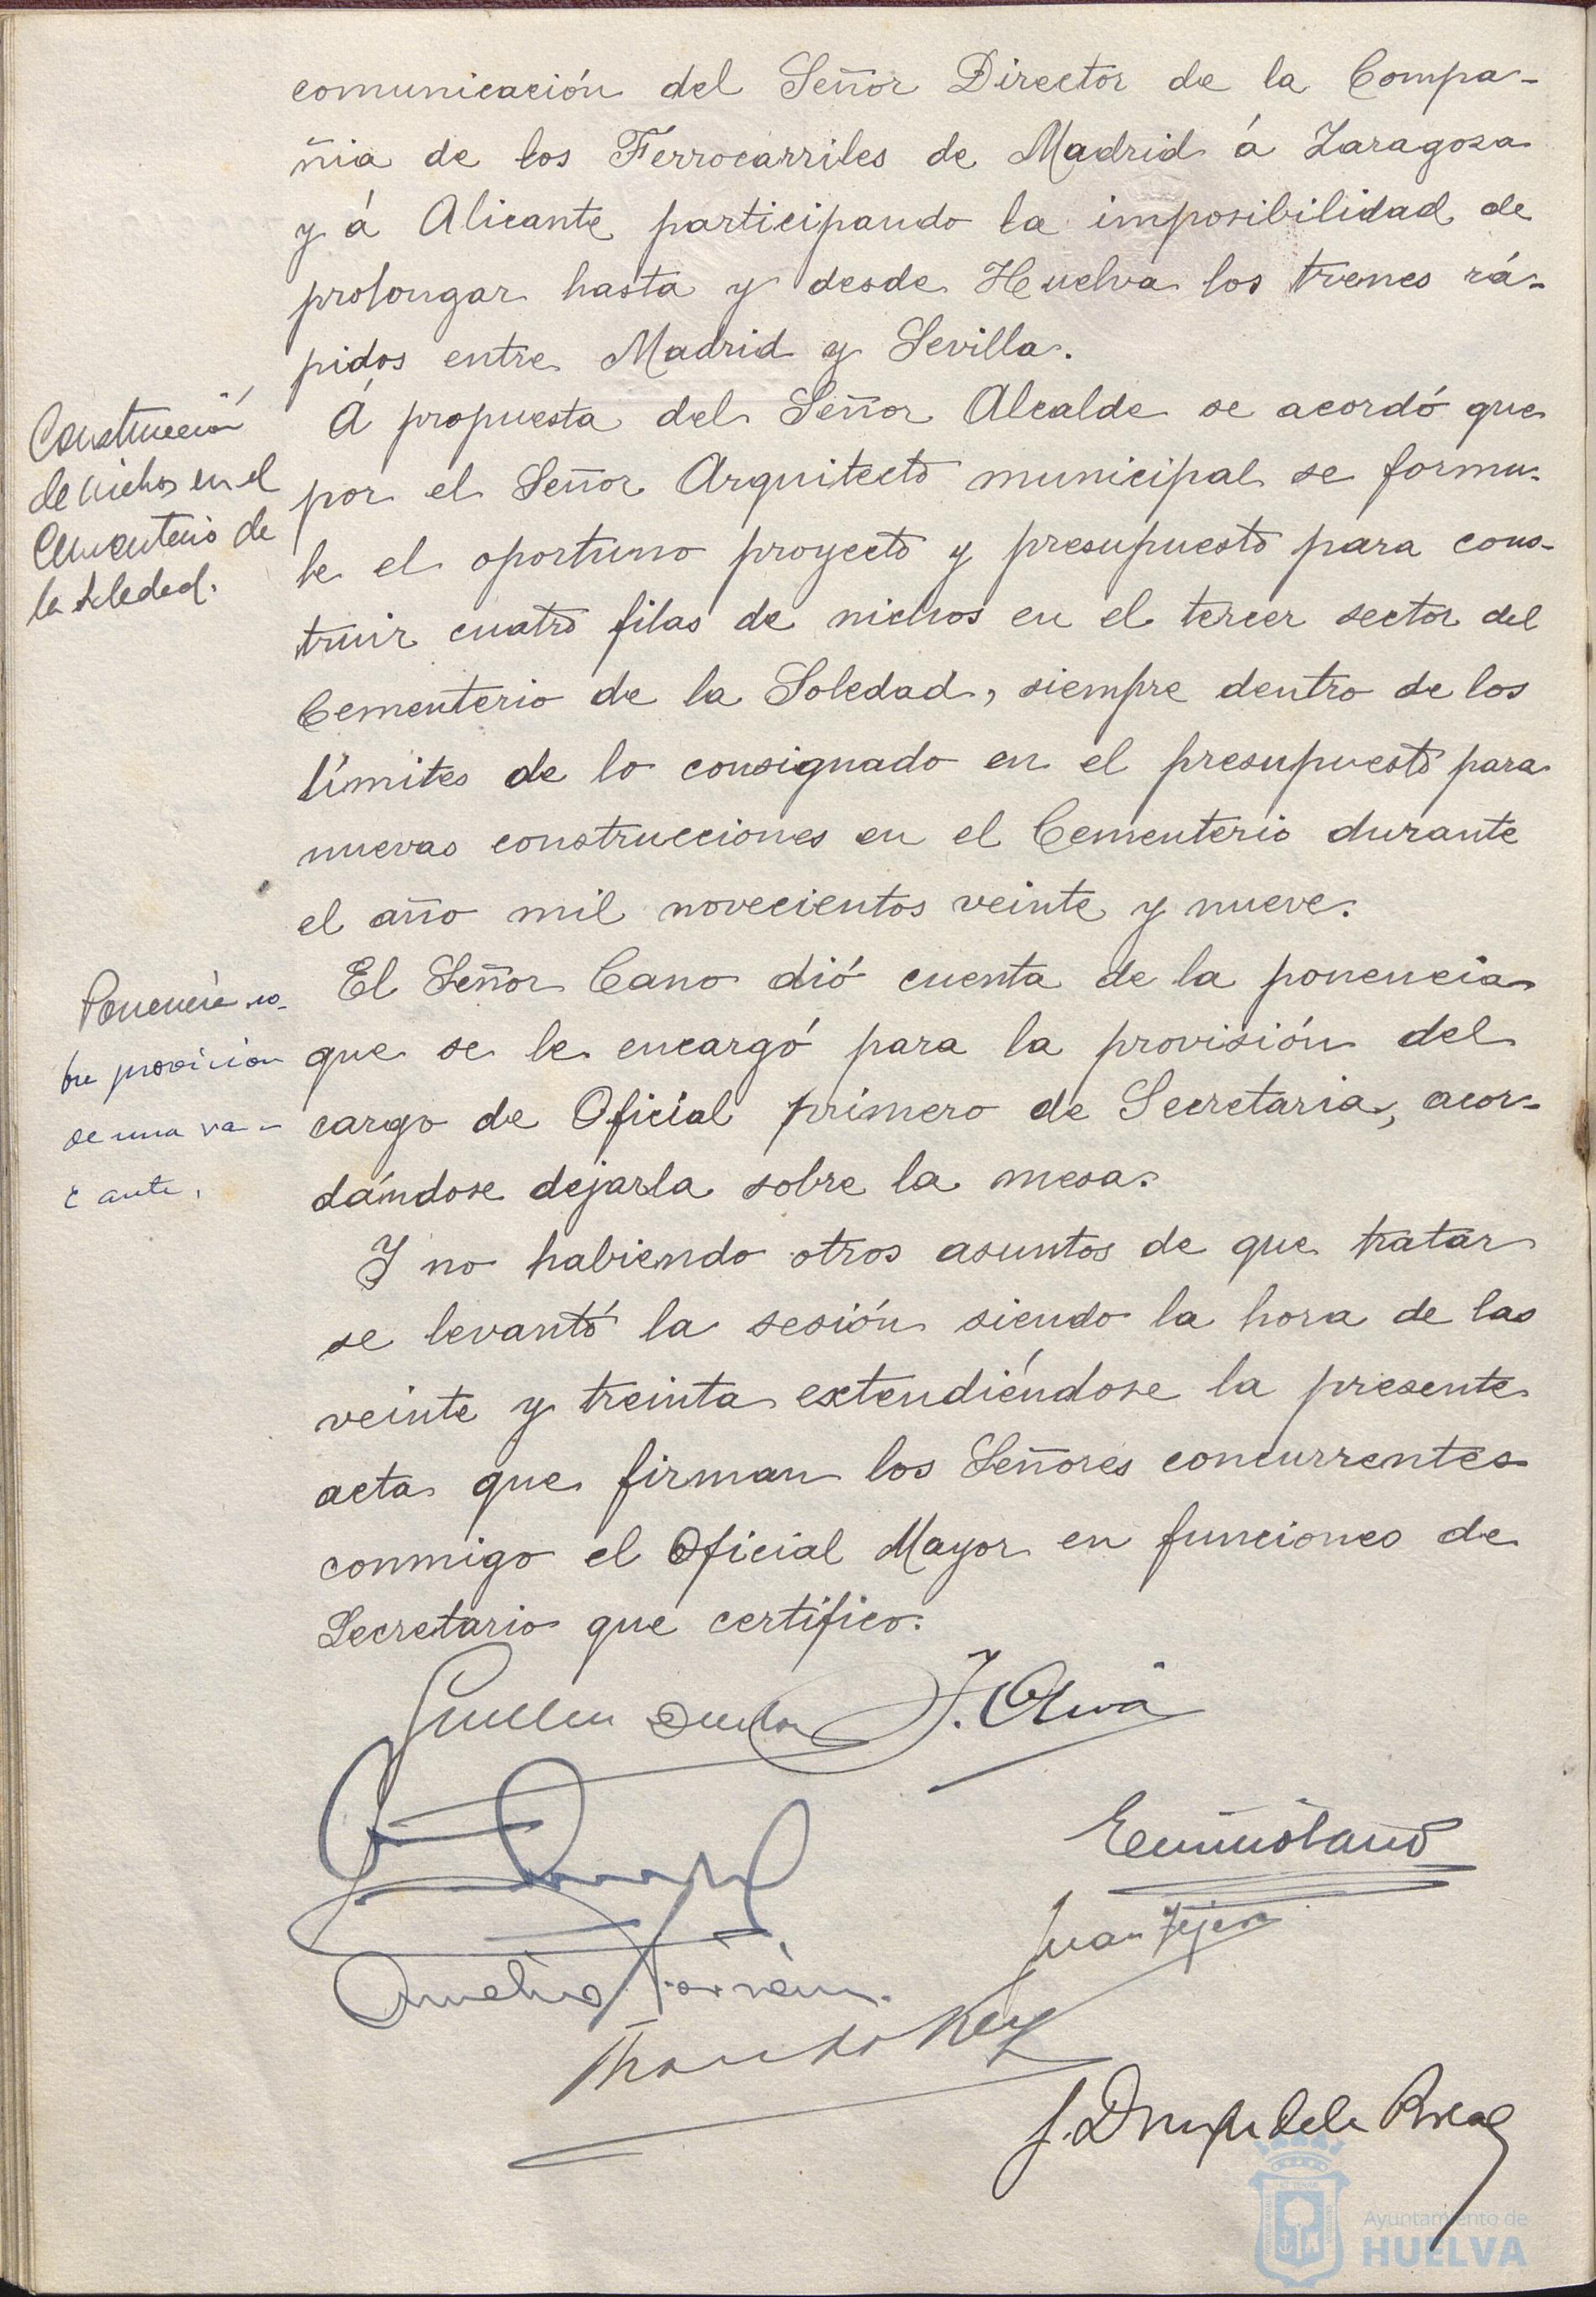 comunicación del Señor Director de la Compa-
ñia de los Ferrocarriles de Madrid á Zaragoza
y á Alicante participando la imposibilidad de
prolongar hasta y desde Huelva los trenes rá-
pidos entre Madrid y Sevilla.
Construcción
de nichos en el
Cementerio de
la Soledad.
Á propuesta del Señor Alcalde se acordó que
por el Señor Arquitecto municipal se formu-
le el oportuno proyecto y presupuesto para cons-
truir cuatro filas de nichos en el tercer sector del
Cementerio de la Soledad, siempre dentro de los
límites de lo consignado en el presupuesto para
nuevas construcciones en el Cementerio durante
el año mil novecientos veinte y nueve.
Ponencia so-
bre provicion
de una va-
cante.
El Señor Cano dió cuenta de la ponencia
que se le encargó para la provisión del
cargo de Oficial primero de Secretaria, acor-
dándose dejarla sobre la mesa.
Y no habiendo otros asuntos de que tratar
se levantó la sesión siendo la hora de las
veinte y treinta extendiéndose la presente
acta que firman los Señores concurrentes
conmigo el Oficial Mayor en funciones de
Secretario que certifico.
J. Oliva
Juan Tejero
Rey
Ayuntamiento de
HUELVA